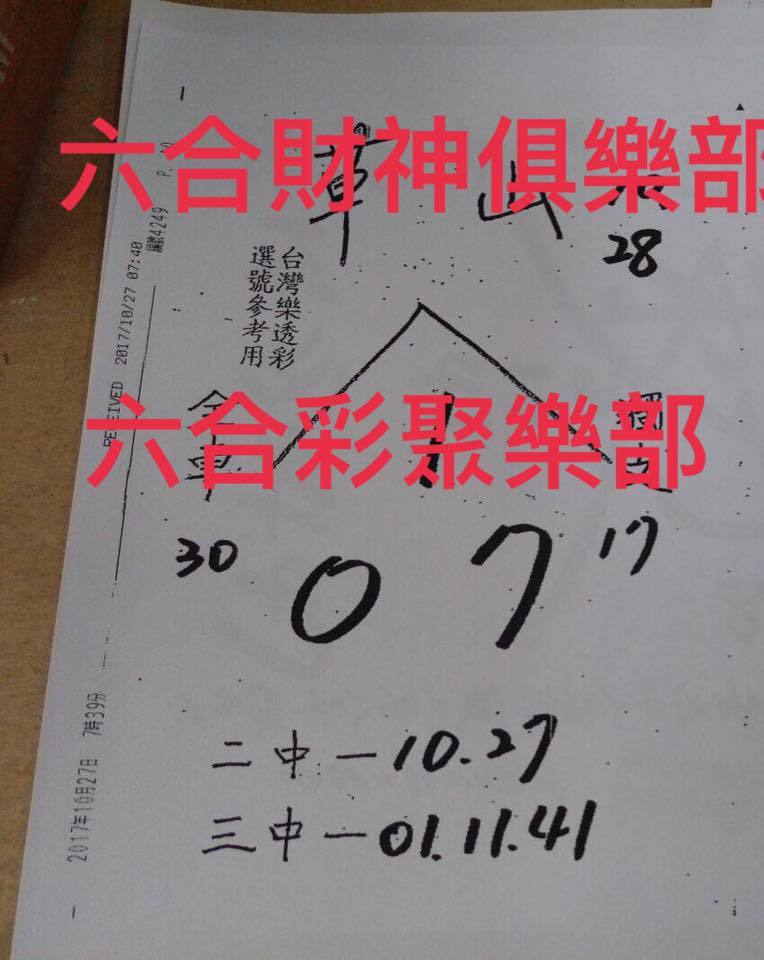 六合財神俱樂部
草出
28
台灣樂透彩
選號參考用
六合彩聚樂部
全車
獨支
30
0 7
17
二中—10.27
三中—01.11.41
RECEIVED 2017/10/27 07:40
2017年10月27日 7時39分